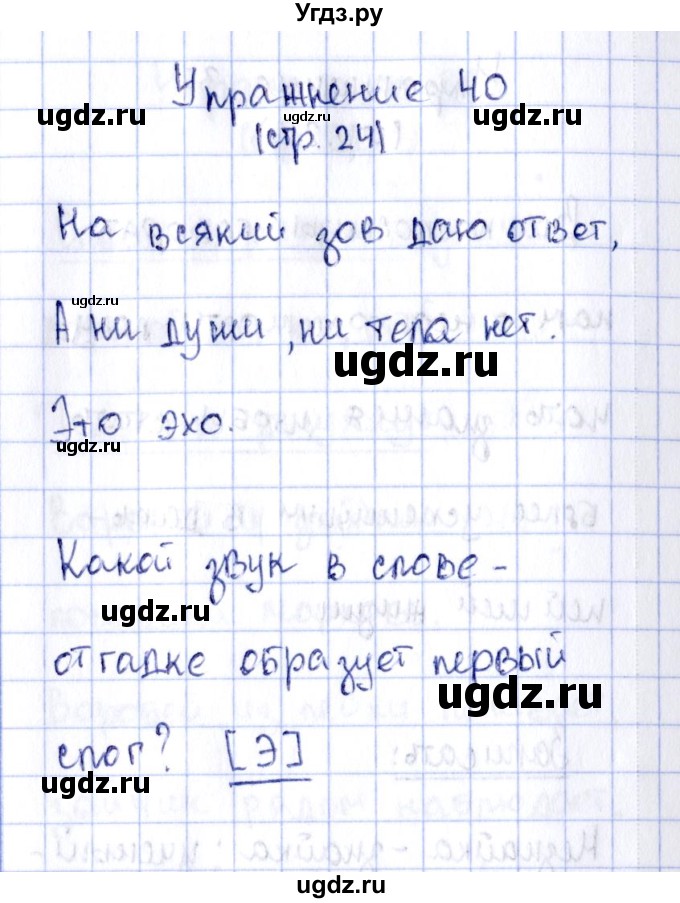 Угдз.ру
Упражнение 40
ugdz.ru ugdz.ru ugdz.ru
(стр. 24)
На всякий зов даю ответ,
ugdz.ru
А ни души, ни тела нет.
ugdz.ru
Это эхо.
ugdz.ru
Какой звук в слове-
ugdz.ru ugdz.ru
отгадке образует первый
ugdz.ru
слог? [Э]
ugdz.ru ugdz.ru
ugdz.ru